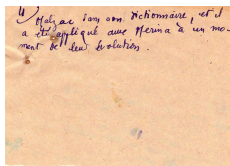 Malzac dans son Dictionnaire, et il
a été appliqué aux Merina à un mo-
ment de leur évolution.